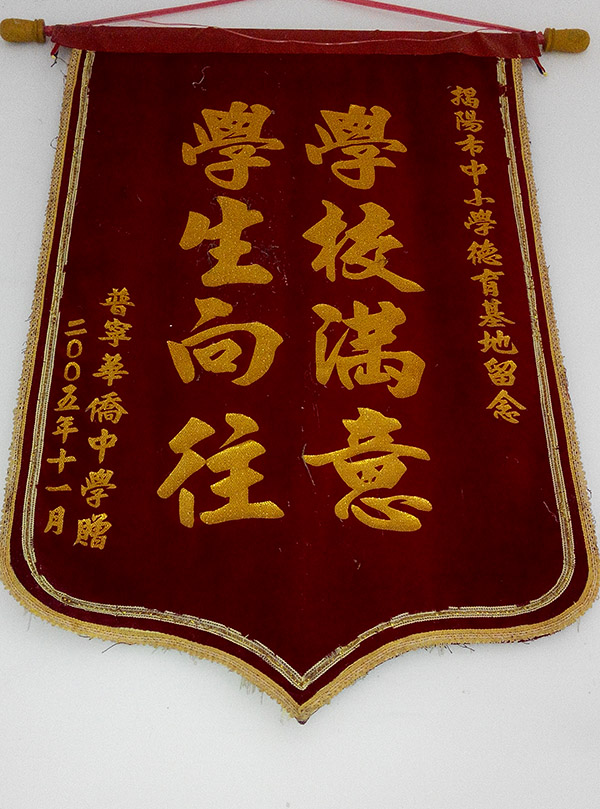 揭陽市中小學德育基地留念
學校满意
學生向往
普寧華僑中學贈
二00五年十一月